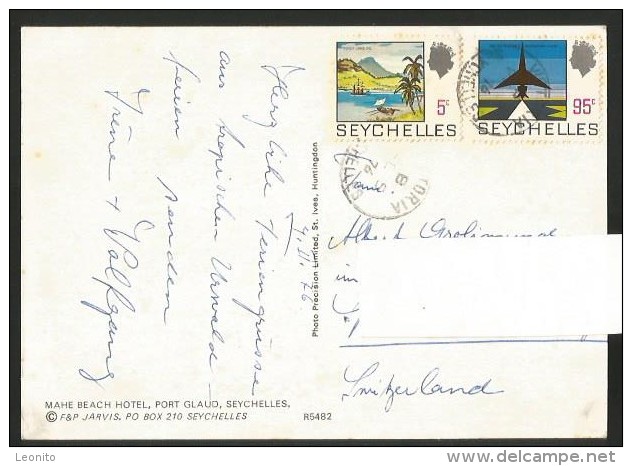 5c
SEYCHELLES
95c
SEYCHELLES
7.II.76
Herzliche Feriengrüsse
aus tropischen Urwald-
ferien senden
Irène + Wolfgang
Photo Precision Limited, St. Ives, Huntingdon
TORIA
8
76
Fam.
im
Switzerland
MAHE BEACH HOTEL, PORT GLAUD, SEYCHELLES.
© F&P JARVIS. PO BOX 210 SEYCHELLES
R5482
delcampe.net